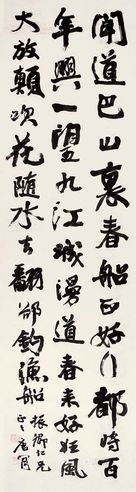 聞道巴山裏春船正好行都將百
年興一望九江城漫道春來好狂風
大放顛吹花隨水去翻卻釣漁船
振卿仁兄
正之唐肯